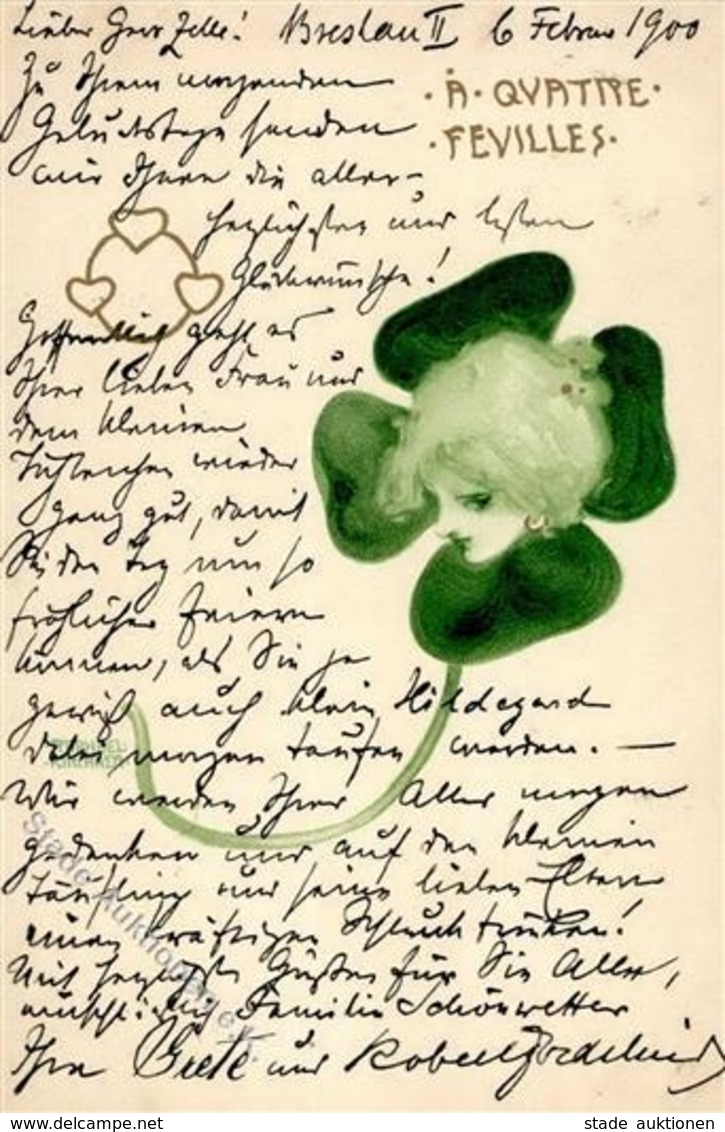 Lieber Herr Zelle! Breslau II 6 Februar 1900
· A · QVATRE ·
· FEVILLES ·
Zu Ihrem morgenden
Geburtstage senden
wir Ihnen die aller-
herzlichsten und besten
Glückwünsche!
Hoffentlich geht es
Ihrer lieben Frau und
dem kleinen
wieder
ganz gut, damit
Sie den Tag um so
fröhlicher feiern
können, als Sie ja
gewiß auch klein Hildegard
dabei morgen taufen werden. —
Wir werden Ihrer Aller morgen
gedenken und auf den kleinen
Täufling und seine lieben Eltern
einen kräftigen Schluck trinken!
Mit herzlichsten Grüßen für Sie Alle,
Familie Schönwetter
Ihre Grete und Robert
Stade Auktionen e.K.
www.delcampe.net
stade auktionen